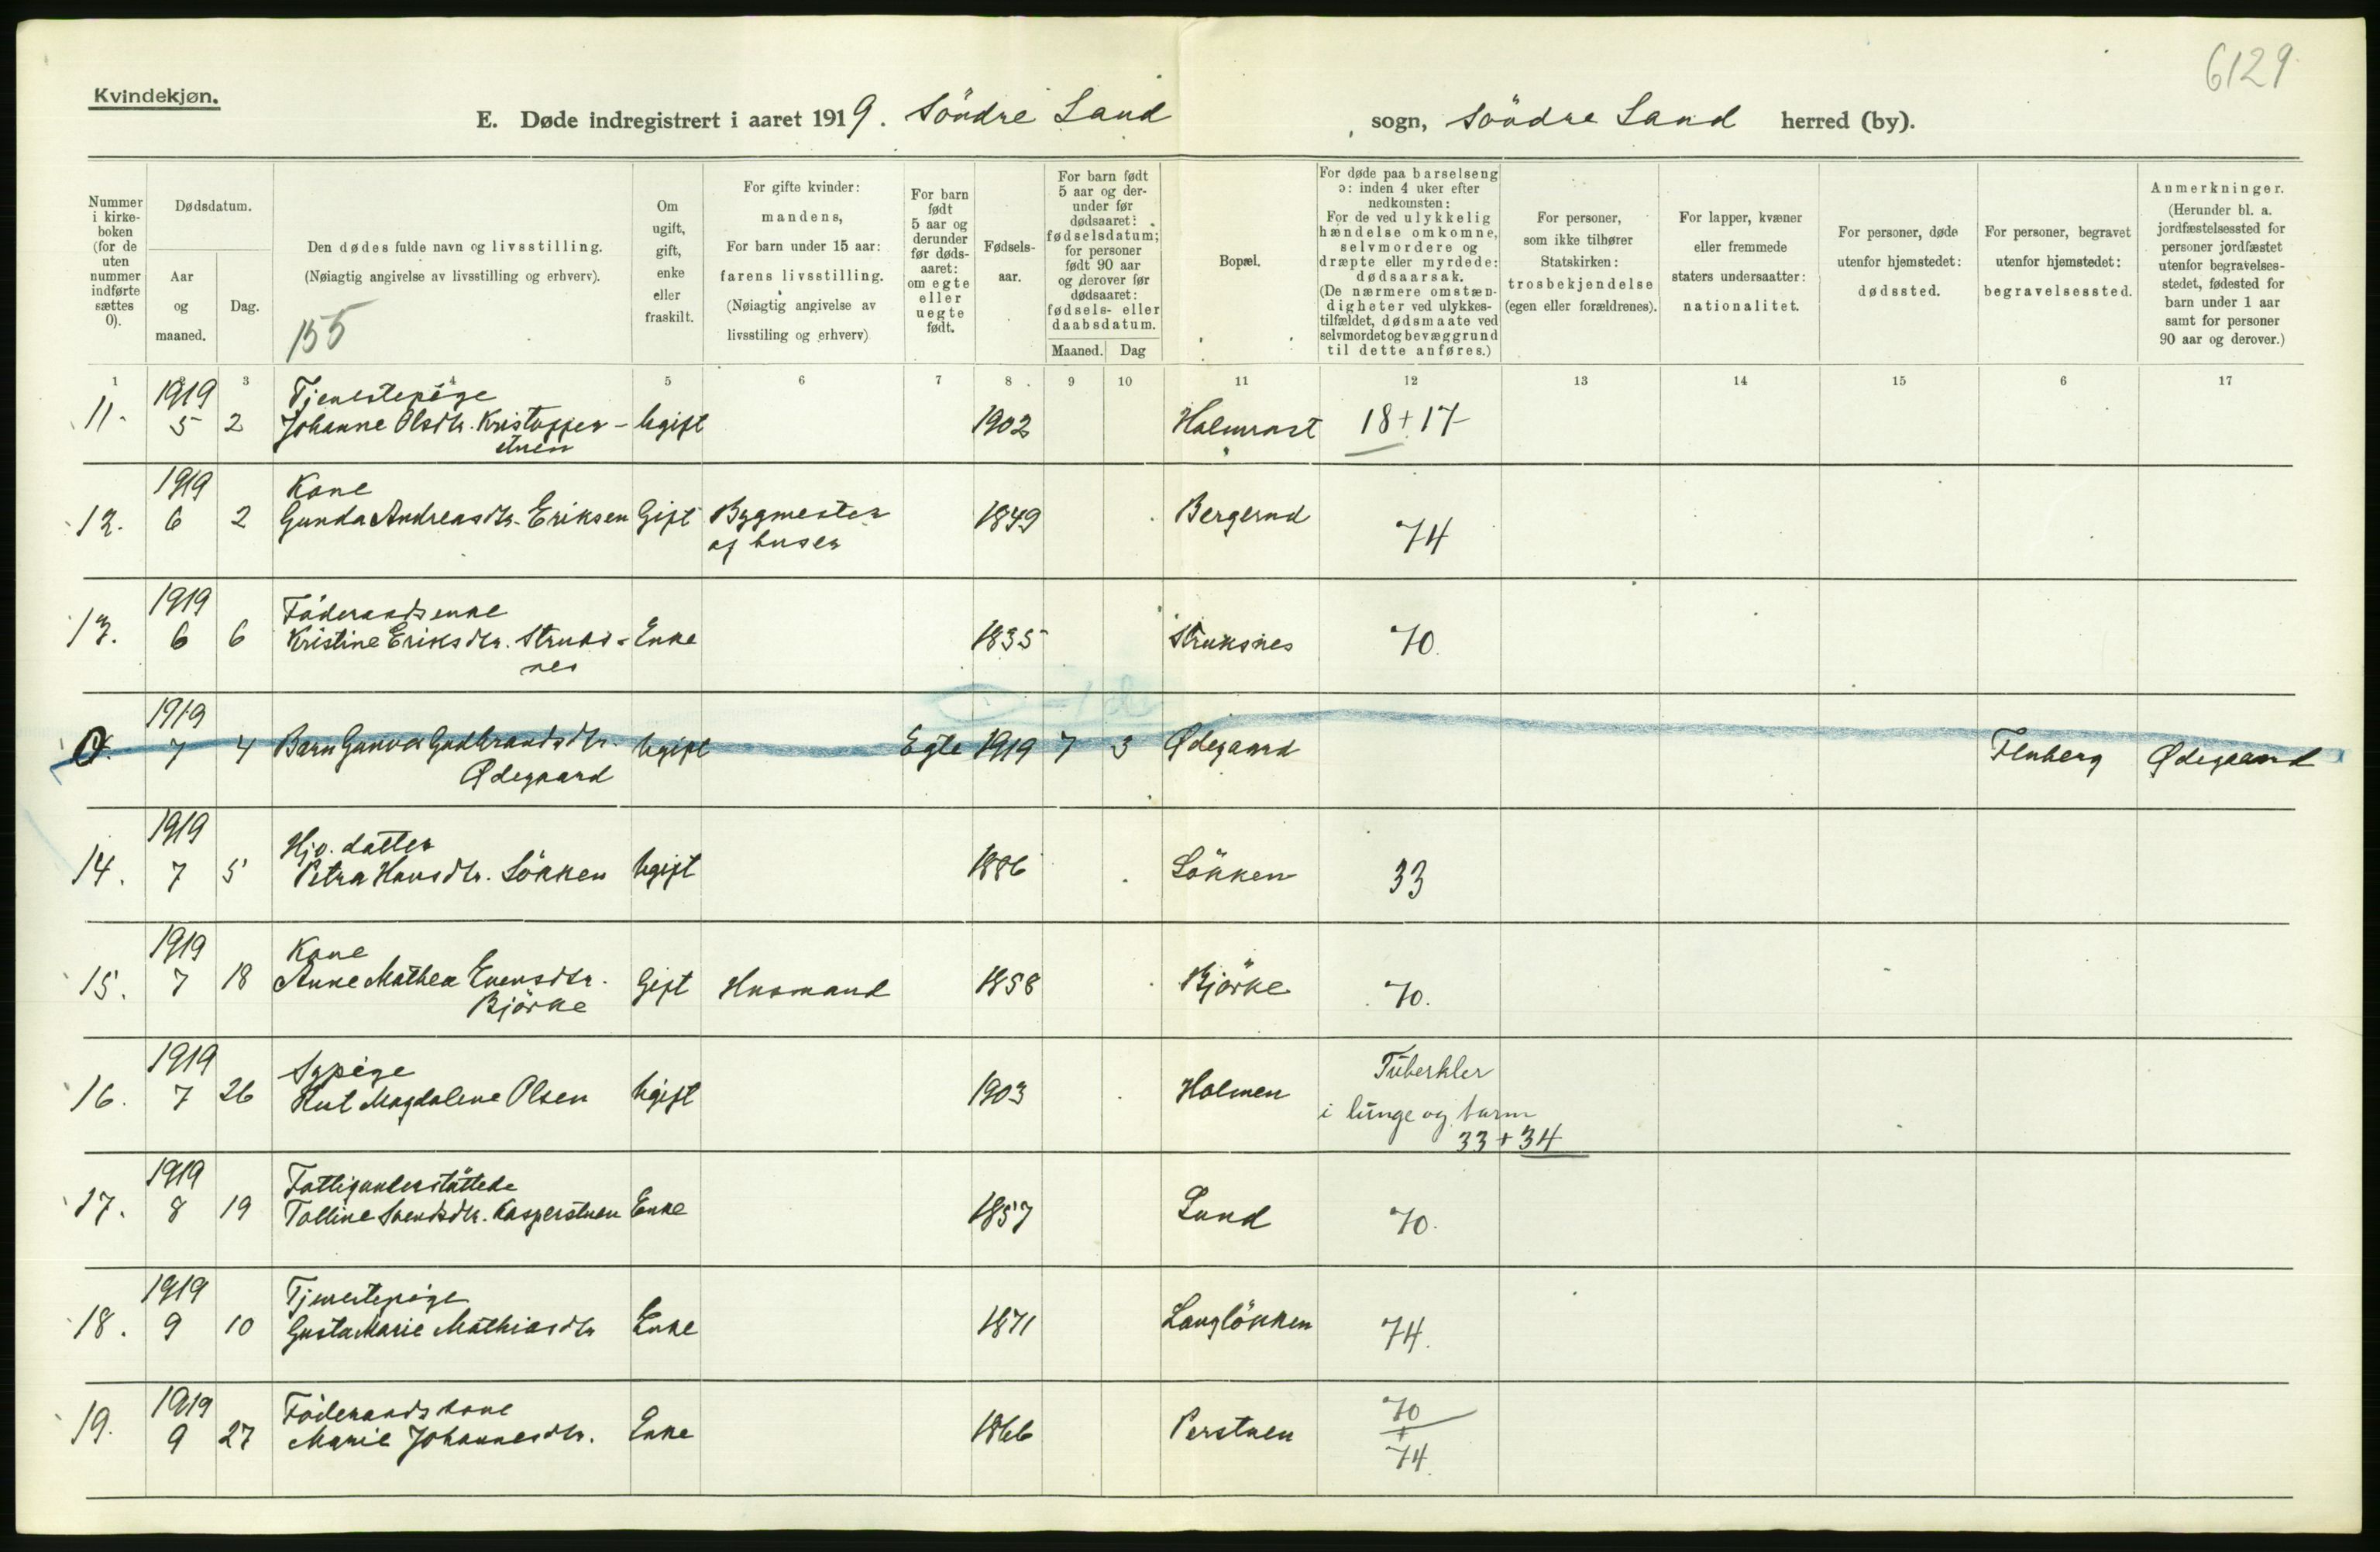 6129
Kvindekjøn.
E. Døde indregistrert i aaret 1919. Söndre Land sogn, Söndre Land herred (by).
Nummer i kirke- boken (for de uten nummer indførte sættes 0).
Dødsdatum.
Aar og maaned.
Dag.
Den dødes fulde navn og livsstilling.
(Nøiagtig angivelse av livsstilling og erhverv).
155
Om ugift, gift, enke eller fraskilt.
For gifte kvinder: mandens,
For barn under 15 aar: farens livsstilling.
(Nøiagtig angivelse av livsstiling og erhverv)
For barn født 5 aar og derunder før døds- aaret: om egte eller uegte født.
Fødsels- aar.
For barn født 5 aar og der- under før dødsaaret: fødselsdatum; for personer født 90 aar og derover før dødsaaret: fødsels- eller daabsdatum.
Maaned. Dag
Bopæl.
For døde paa barselseng ɔ: inden 4 uker efter nedkomsten:
For de ved ulykkelig hændelse omkomne, selvmordere og dræpte eller myrdede: dødsaarsak.
(De nærmere omstæn- digheter ved ulykkes- tilfældet, dødsmaate ved selvmordet og bevæggrund til dette anføres.)
For personer, som ikke tilhører Statskirken: trosbekjendelse (egen eller forældrenes).
For lapper, kvæner eller fremmede staters undersaatter: nationalitet.
For personer, døde utenfor hjemstedet: dødssted.
For personer, begravet utenfor hjemstedet: begravelsessted.
Anmerkninger.
(Herunder bl. a. jordfæstelsessted for personer jordfæstet utenfor begravelses- stedet, fødested for barn under 1 aar samt for personer 90 aar og derover.)
1 2 3 4 5 6 7 8 9 10 11 12 13 14 15 6 17
1919 Tjenestepige
11. 5 2 Johanne Olsdtr. Kristoffer- Ugift 1902 Holmrast 18+17
stuen
1919 Kone
12. 6 2 Gunda Andreasdtr. Eriksen Gift Bygmester 1849 Bergerud 74
af huser
1919 Föderaadsenke
13. 6 6 Kristine Eriksdtr. Struks- Enke 1835 Struksnes 70
nes
1919
0. 7 4 Barn Gunvor Gudbrandsdtr. Ugift Egte 1919 7 3 Ødegaard Fluberg Ødegaard
Ødegaard
1919 Hjv. datter
14. 7 5 Petra Hansdtr. Lökken Ugift 1886 Lökken 33
1919 Kone
15. 7 18 Anne Mathea Evensdtr. Gift Husmand 1858 Björke 70.
Björke
1919 Sypige Tuberkler
16. 7 26 Rut Magdalene Olsen Ugift 1903 Holmen i lunge og tarm
33+34
1919 Fattigunderstöttede
17. 8 19 Tolline Svendsdtr. Kasperstuen Enke 1857 Lund 70.
1919 Tjenestepige
18. 9 10 Gusta Marie Mathiasdtr Enke 1871 Langlökken 74.
1919 Föderaadskone 70
19. 9 27 Marie Johannesdtr. Enke 1866 Perstuen +
74.